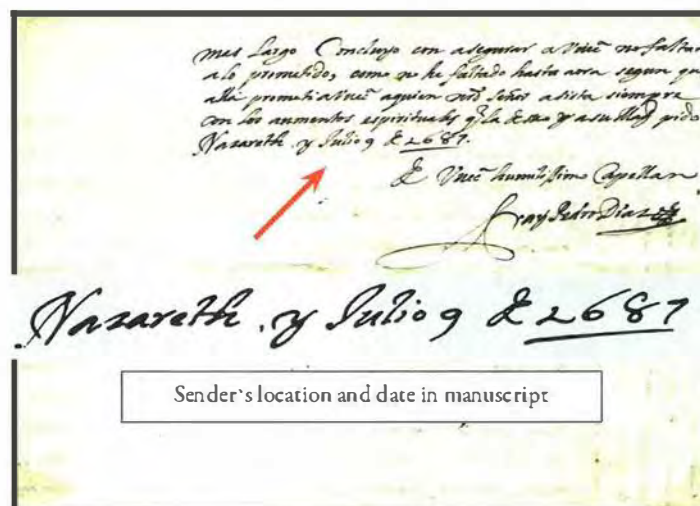 mas largo Concluyo con asegurar a Vmẽ no faltar
a lo prometido, como no he faltado hasta aora segun que
alla prometi a Vmẽ aquien nrõ Señor asista siempre
con los aumentos espirituales q̃ le y a su Magd pido
Nazareth y Julio 9 de 2687.
de Vmẽ humilissimo Capellan
fray Pedro Diaz
Nazareth y Julio 9 de 2687
Sender`s location and date in manuscript